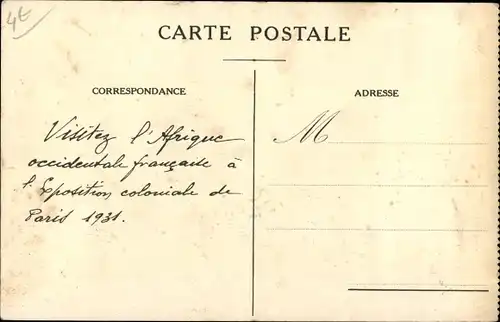 4€
CARTE POSTALE
CORRESPONDANCE
ADRESSE
Visitez l'Afrique
occidentale française à
l'Exposition coloniale de
Paris 1931.
M